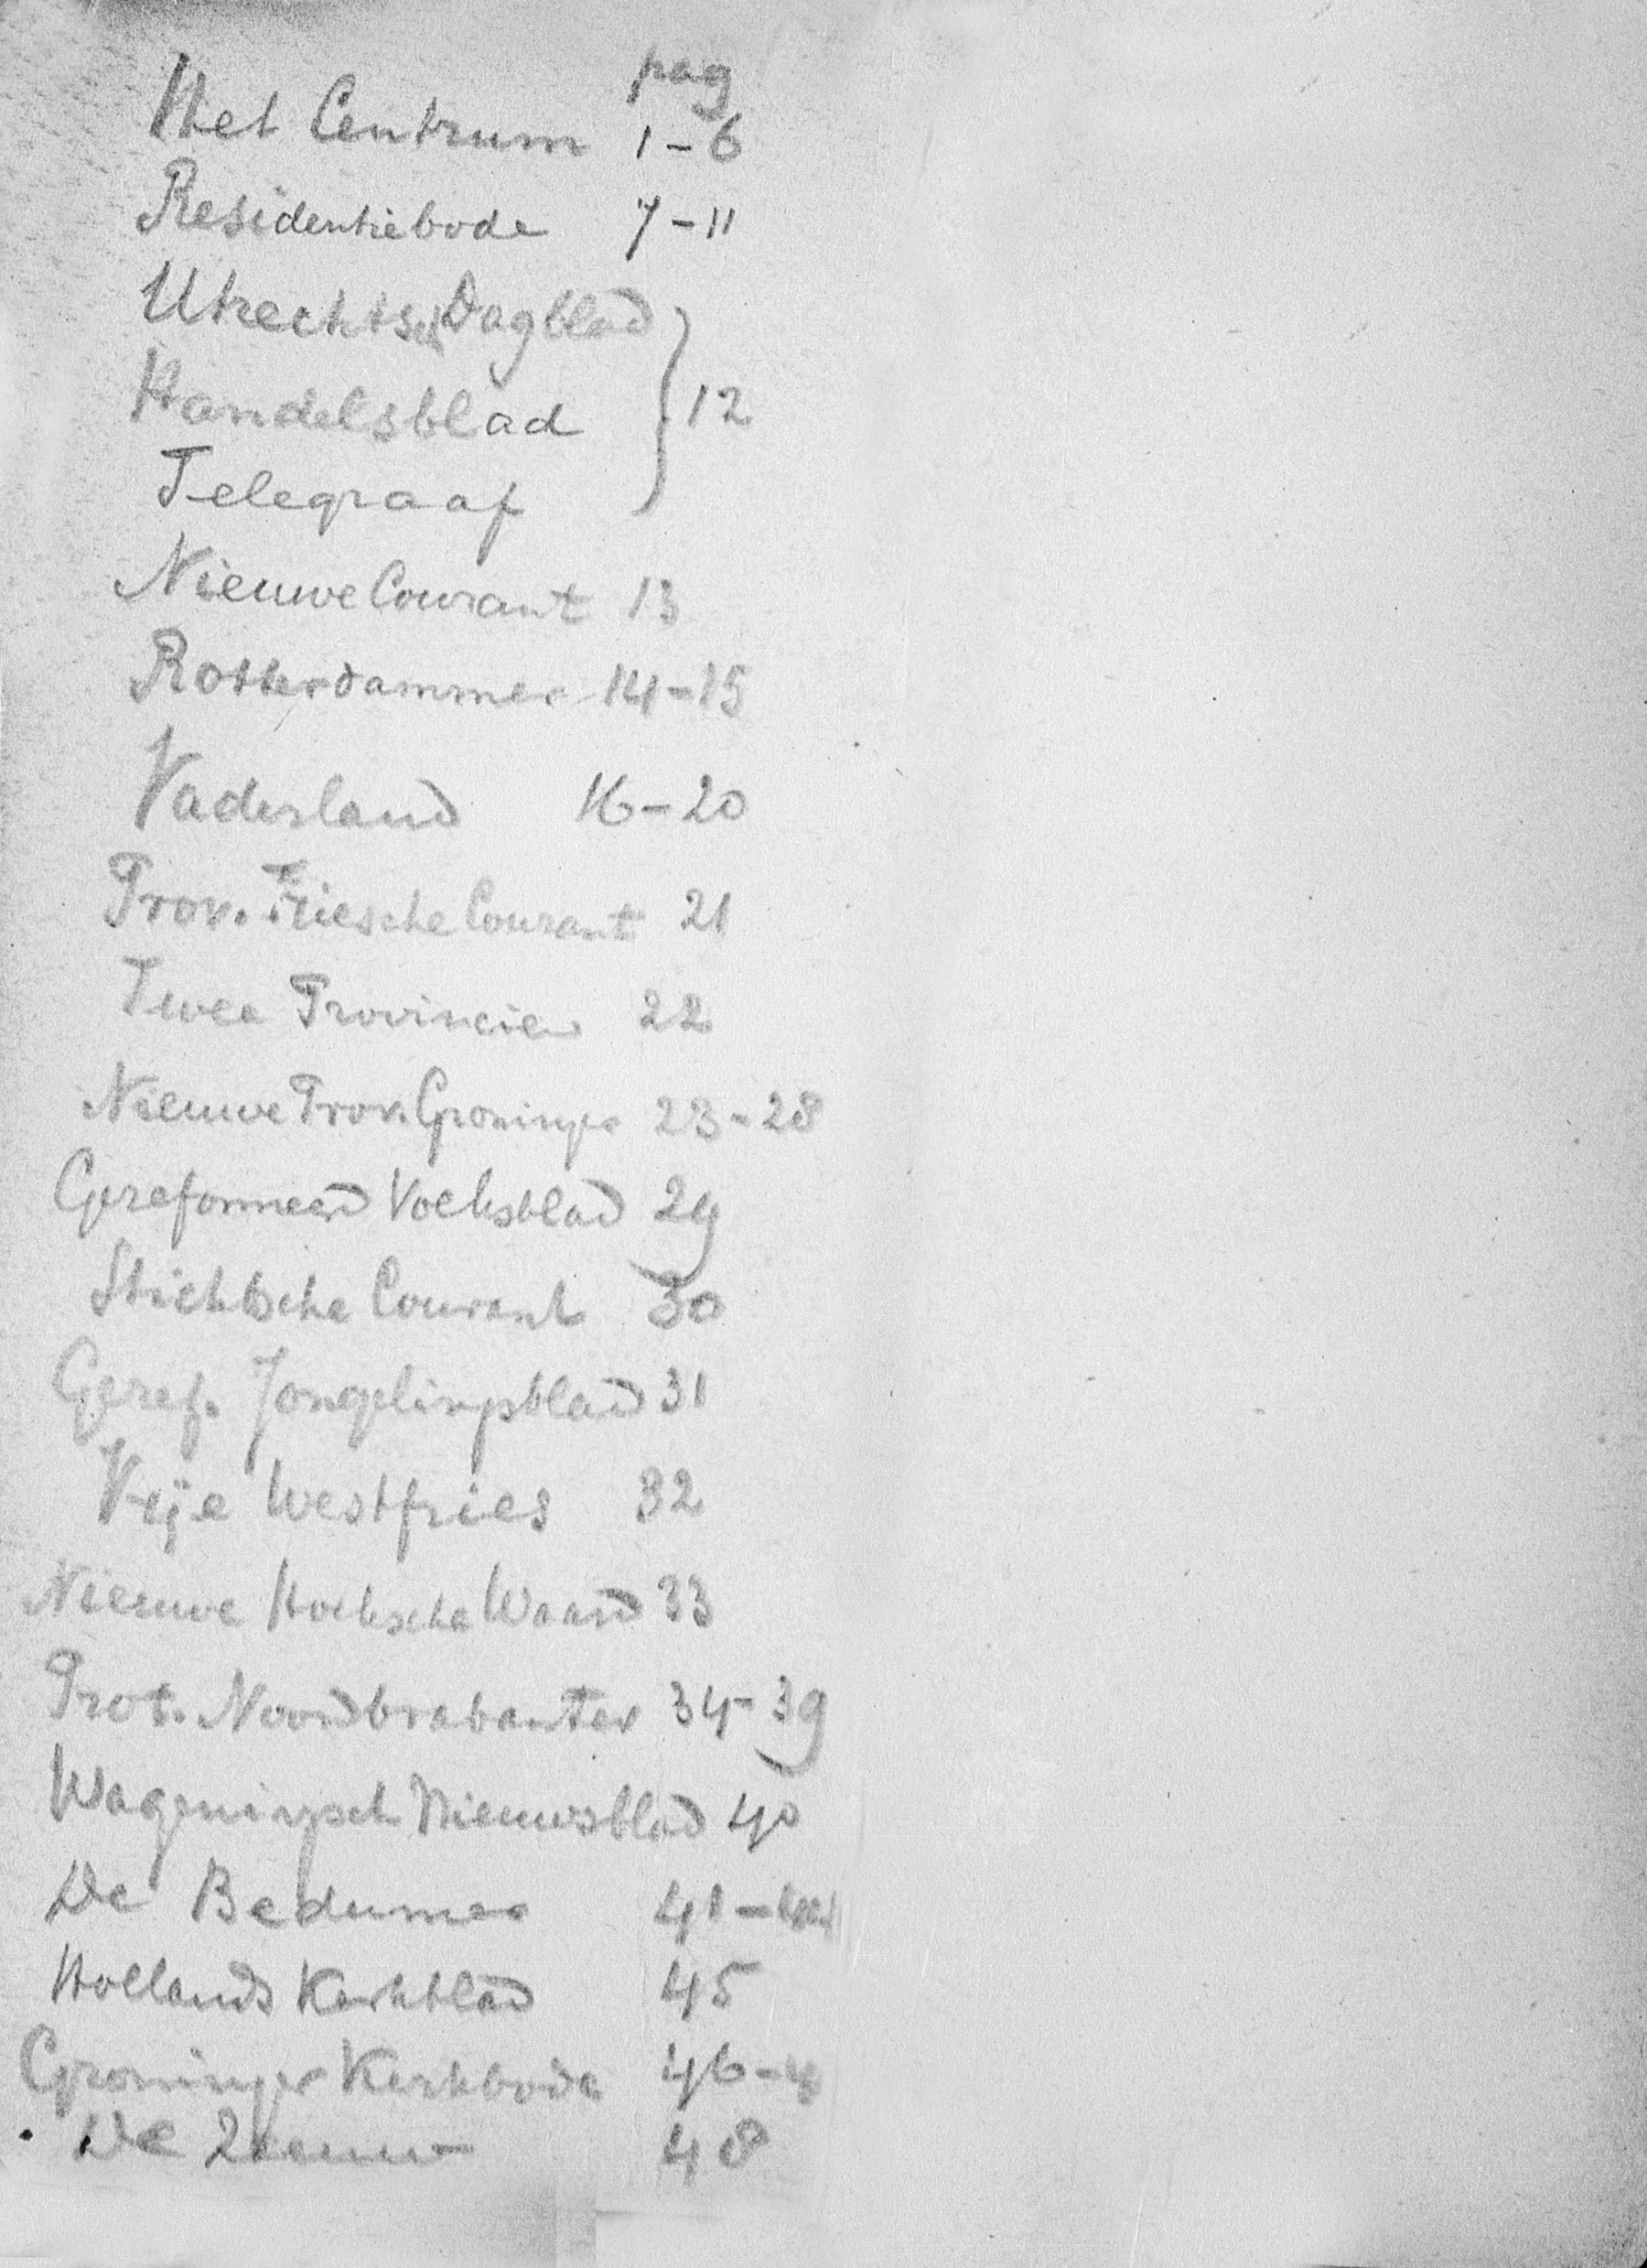 pag
Het Centrum 1-6
Residentiebode 7-11
Utrechtsch Dagblad
Handelsblad } 12
Telegraaf
Nieuwe Courant 13
Rotterdammer 14-15
Vaderland 16-20
Prov. Friesche Courant 21
Twee Provincien 22
Nieuwe Prov. Groninger 23-28
Gereformeerd Volksblad 29
Stichtsche Courant 30
Geref. Jongelingsblad 31
Vrije Westfries 32
Nieuwe Hoeksche Waard 33
Prot. Noordbrabanter 34-39
Wageningsch Nieuwsblad 40
De Bedumer 41-
Hollands Kerkblad 45
Groninger Kerkbode 46-
De Zeeuw 48